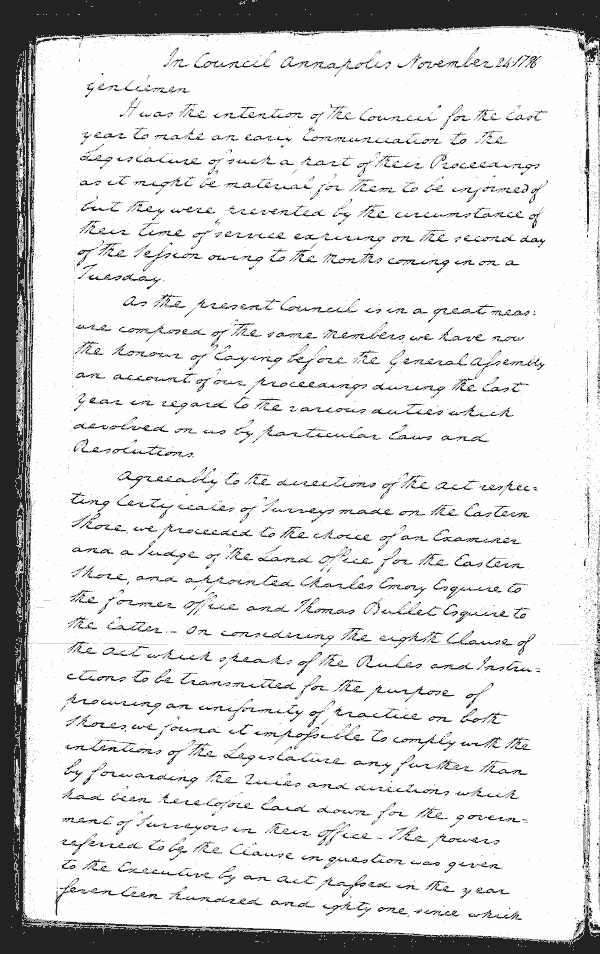 In Council Annapolis November 24 1796
Gentlemen
It was the intention of the Council for the last
year to make an early Communication to the
Legislature of such a part of their Proceedings
as it might be material for them to be informed of
but they were prevented by the circumstance of
their time of service expiring on the second day
of the Session owing to the Months coming in on a
Tuesday.
As the present Council is in a great meas:
ure composed of the same Members we have now
the honour of laying before the General Assembly
an account of our proceedings during the last
year in regard to the various duties which
devolved on us by particular laws and
Resolutions.
Agreeably to the directions of the Act respec=
ting Certificates of Surveys made on the Eastern
Shore, we proceeded to the choice of an Examiner
and a Judge of the Land Office for the Eastern
Shore, and appointed Charles Emory Esquire to
the former Office and Thomas Bullet Esquire to
the latter – On considering the eighth Clause of
the Act which speaks of the Rules and Instru=
ctions to be transmitted for the purpose of
procuring an uniformity of practice on both
Shores, we found it impossible to comply with the
intentions of the Legislature any further than
by forwarding the rules and directions which
had been heretofore laid down for the govern=
ment of Surveyors in their Office – The powers
referred to by the Clause in question was given
to the Executive by an Act passed in the year
Seventeen hundred and eighty one since which